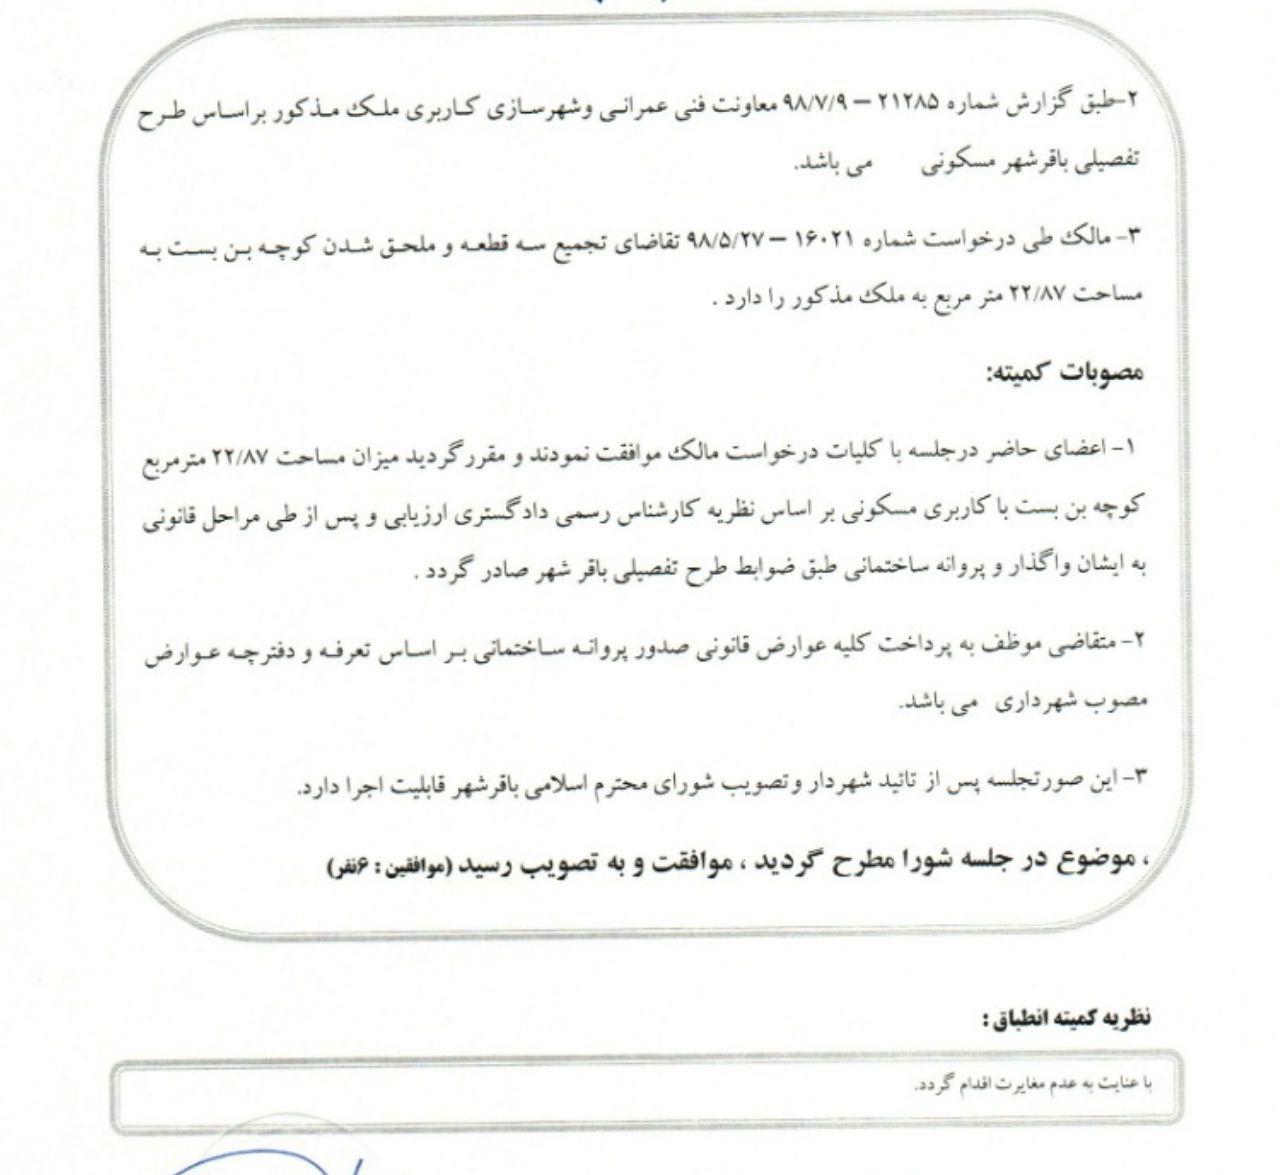 ۲-طبق گزارش شماره ۲۱۲۸۵ – ۹۸/۷/۹ معاونت فنی عمرانی وشهرسازی کاربری ملک مذکور براساس طرح
تفصیلی باقرشهر مسکونی می باشد.
۳- مالک طی درخواست شماره ۱۶۰۲۱ – ۹۸/۵/۲۷ تقاضای تجمیع سه قطعه و ملحق شدن کوچه بن بست به
مساحت ۲۲/۸۷ متر مربع به ملک مذکور را دارد .
مصوبات کمیته:
۱- اعضای حاضر درجلسه با کلیات درخواست مالک موافقت نمودند و مقررگردید میزان مساحت ۲۲/۸۷ مترمربع
کوچه بن بست با کاربری مسکونی بر اساس نظریه کارشناس رسمی دادگستری ارزیابی و پس از طی مراحل قانونی
به ایشان واگذار و پروانه ساختمانی طبق ضوابط طرح تفصیلی باقر شهر صادر گردد .
۲- متقاضی موظف به پرداخت کلیه عوارض قانونی صدور پروانه ساختمانی بر اساس تعرفه و دفترچه عوارض
مصوب شهرداری می باشد.
۳- این صورتجلسه پس از تائید شهردار وتصویب شورای محترم اسلامی باقرشهر قابلیت اجرا دارد.
، موضوع در جلسه شورا مطرح گردید ، موافقت و به تصویب رسید (موافقین : ۶نفر)
نظریه کمیته انطباق :
با عنایت به عدم مغایرت اقدام گردد.